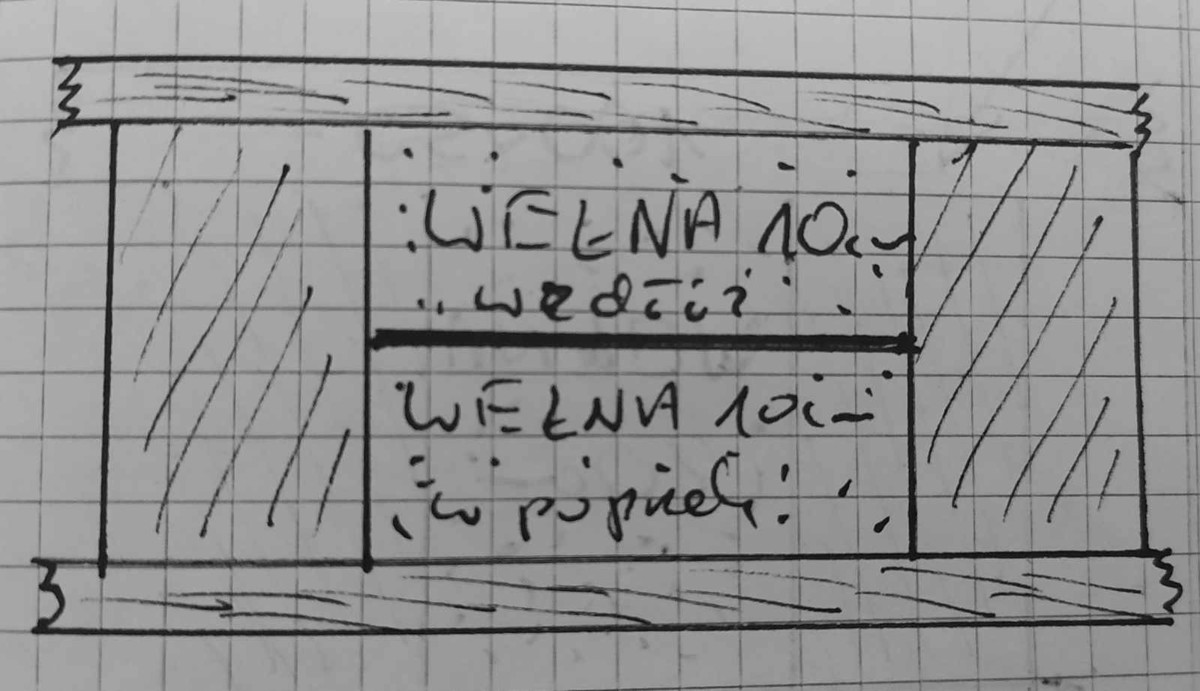 WEŁNA 10cm
wzdłuż
WEŁNA 10cm
w poprzek!